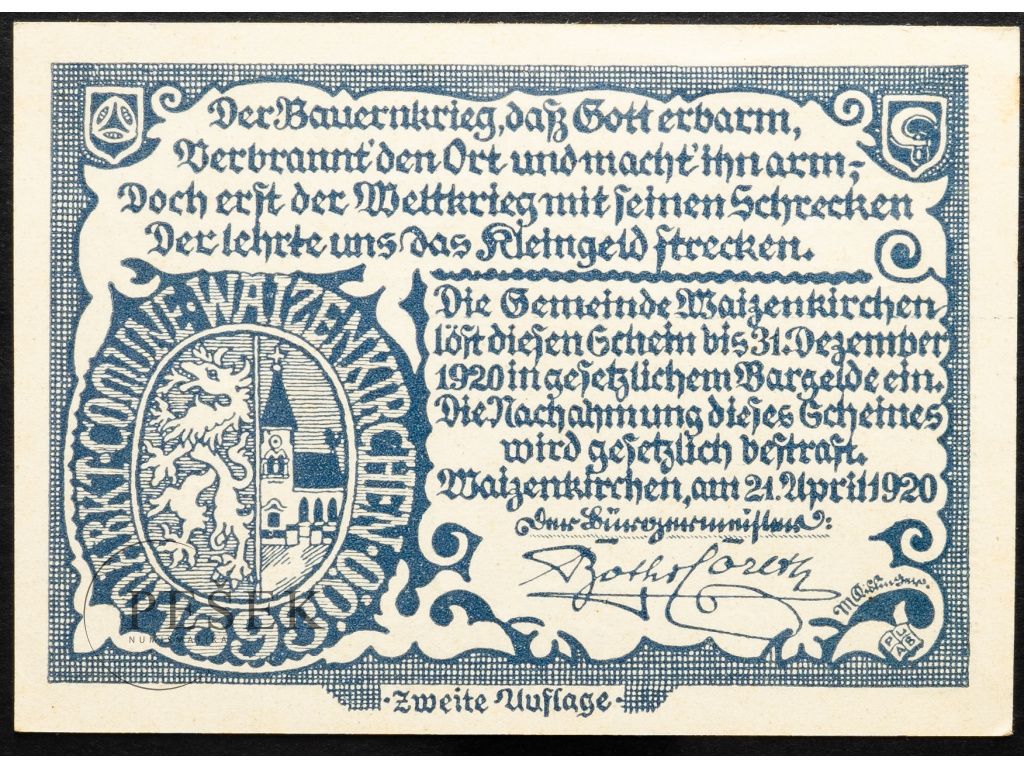 Der Bauernkrieg, daß Gott erbarm,
Verbrannt' den Ort und macht' ihn arm,
Doch erst der Weltkrieg mit seinen Schrecken
Der lehrte uns das Kleingeld strecken.
MARKTCOMUNE·WAIZENKIRCHEN
Die Gemeinde Waizenkirchen
löst diesen Schein bis 31. Dezember
1920 in gesetzlichem Bargelde ein.
Die Nachahmung dieses Scheines
wird gesetzlich bestraft.
Waizenkirchen, am 21. April 1920
Der Bürgermeister:
PESEK
NUMISMATIKA
·Zweite Auflage·